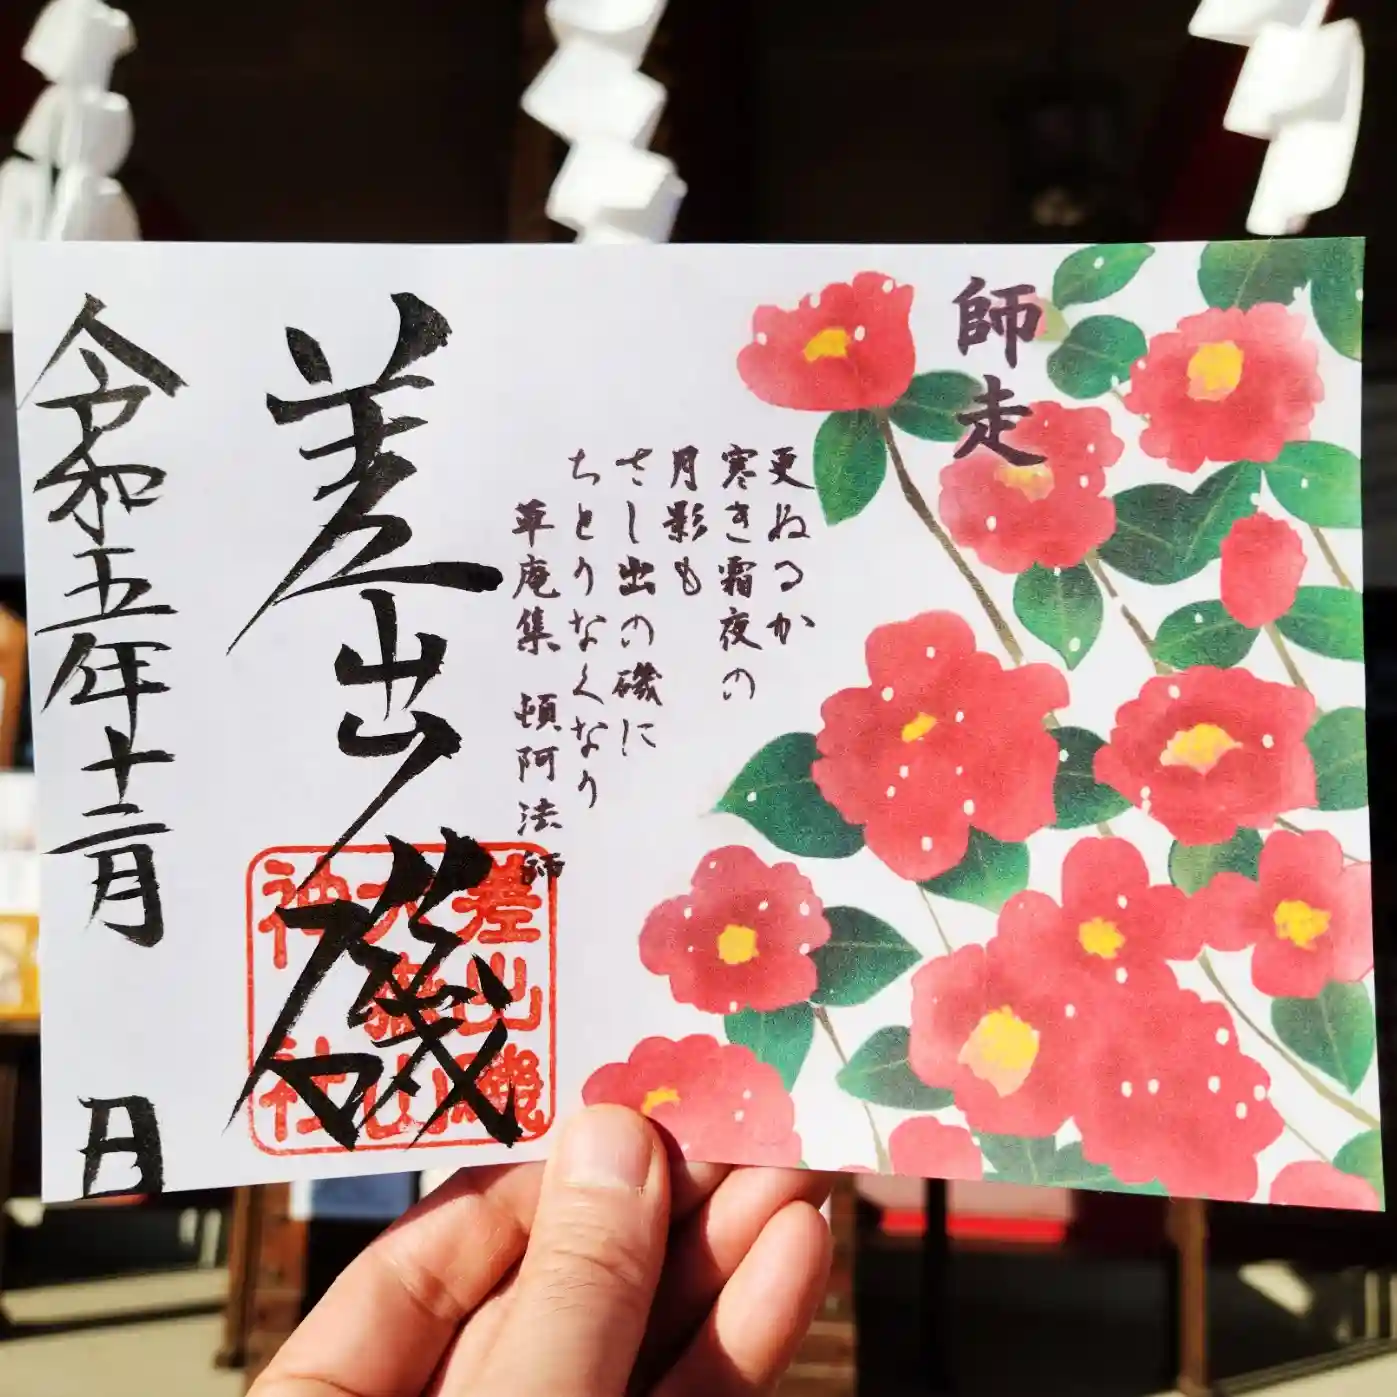 師走
更ぬるか
寒き霜夜の
月影も
さし出の磯に
ちとりなくなり
草庵集 頓阿法師
差出磯
差出磯
大嶽山
神社
令和五年十二月 日